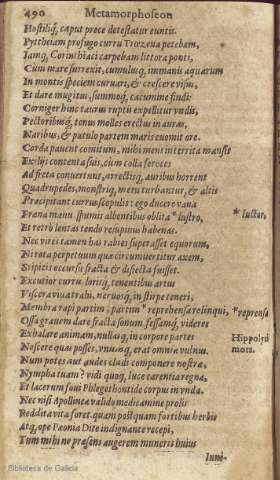 490 Metamorphoseon
Hostiliq́; caput prece detestatur euntis.
Pyttheiam profugo curru Trœzena petebam,
Iamq́; Corinthiaci carpebam littora ponti,
Cum mare surrexit, cumulusq́; immanis aquarum
In montis speciem curuari, & crescere visus,
Et dare mugitus, summoq́; cacumine findi:
Corniger hinc taurus ruptis expellitur vndis,
Pectoribusq́; tenus molles erectus in auras,
Naribus, & patulo partem maris euomit ore.
Corda pauent comitum, mihi mens interrita mansit
Exilijs contenta suis, cùm colla feroces
Ad freta conuertunt, arrectisq́; auribus horrent
Quadrupedes, monstriq́; metu turbantur, & altis
Præcipitant currus scopulis: ego ducere vana
Frana manu spumis albentibus oblita * lustro, * luctor,
Et retrò lentas tendo resupinus habenas.
Nec vires tamen has rabies superasset equorum,
Ni rota perpetuum qua circumuertitur axem,
Stipitis occursu fracta & disiecta fuisset.
Excutior curru. lorisq́; tenentibus artus
Viscera viua trahi, neruosq́; in stirpe teneri,
Membra rapi partim, partim * reprehensa relinqui, * reprensa
Ossa grauem dare fracta sonum, fessamq́; videres
Exhalare animam, nullasq́; in corpore partes Hippolyti
Noscere quas posses, vnumq́; erat omnia vulnus. mors.
Num potes aut audes cladi componere nostræ,
Nympha tuam? vidi quoq; luce carentia regna,
Et lacerum foui Phlegethontide corpus in vnda.
Nec nisi Apollineæ valido medicamine prolis
Reddita vita foret. quam postquam fortibus herbis
Atq; ope Pæonia Dite indignante recepi,
Tum mihi ne præsens augerem muneris huius
Inui-
Biblioteca de Galicia